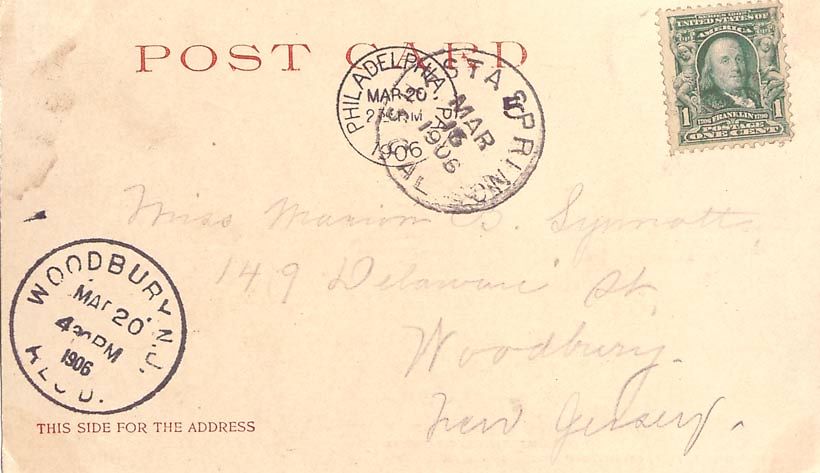 POST CARD
SERIES 1902
UNITED STATES OF AMERICA
1 1706 FRANKLIN 1790 1
POSTAGE
ONE CENT
PHILADELPHIA, PA.
MAR 20
1906
STA SPRING
MAR
1906
CAL
Miss Marion B. Synnott
149 Delaware St.
Woodbury.
New Jersey.
WOODBURY, N.J.
MAR 20
4 PM
1906
REC'D.
THIS SIDE FOR THE ADDRESS